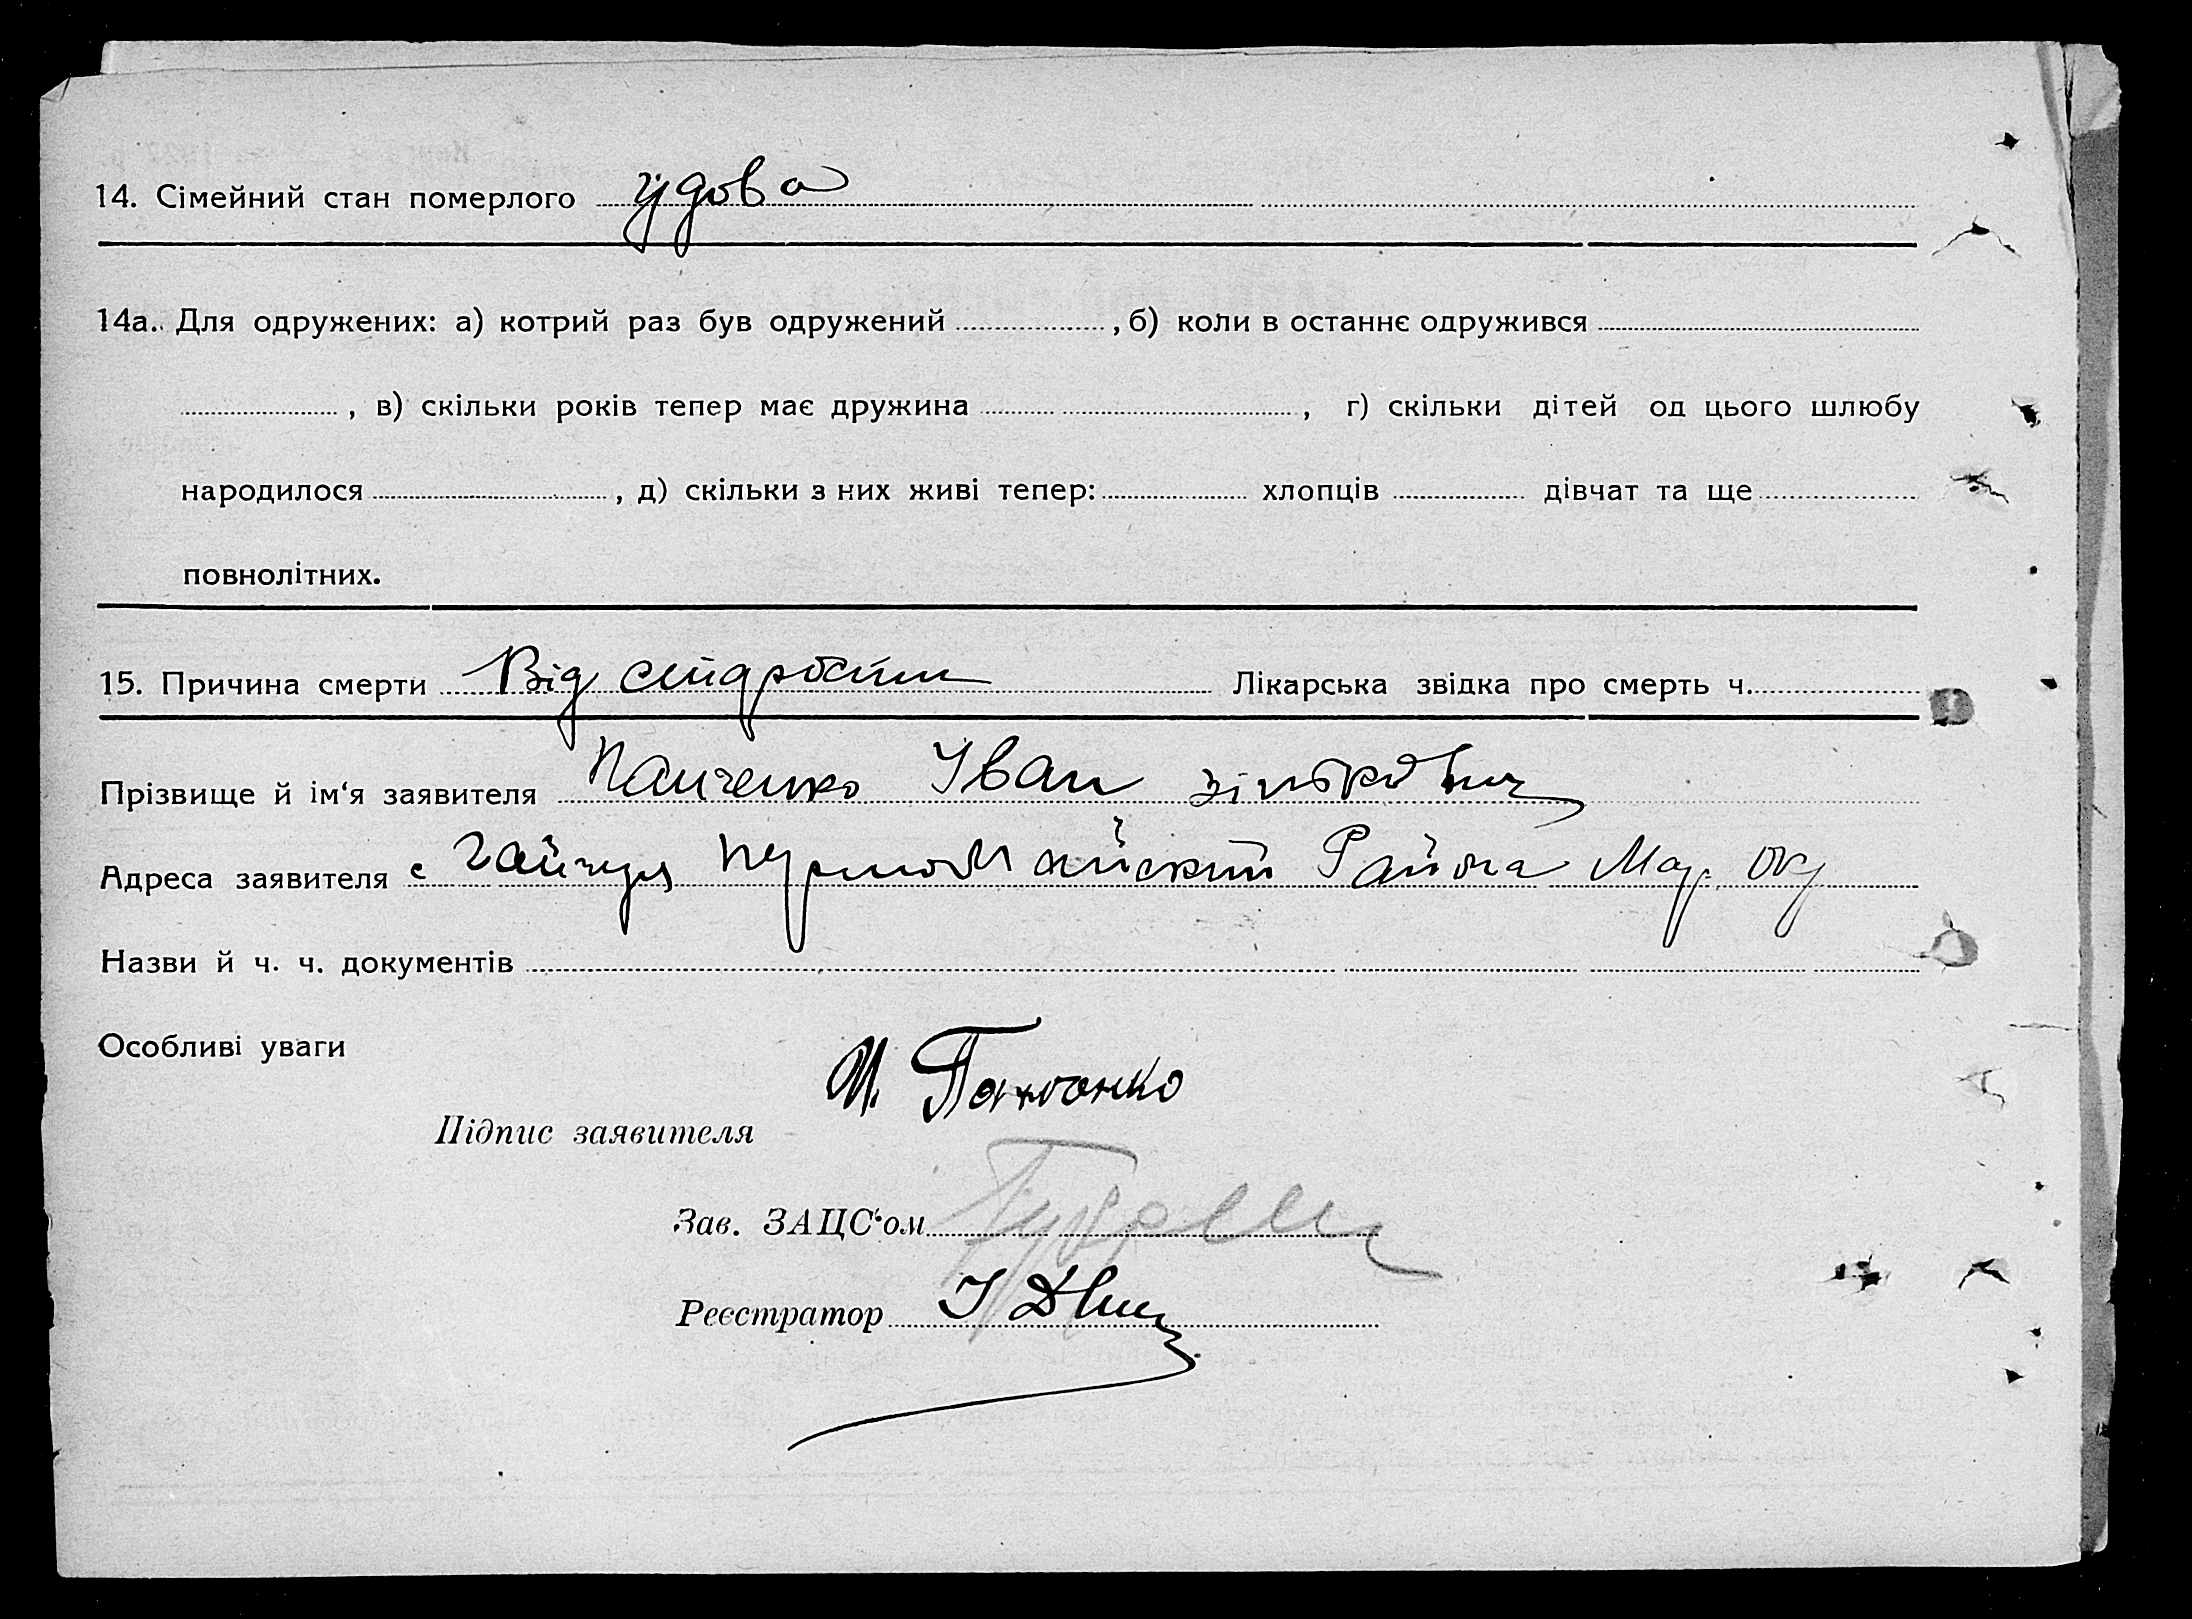 14. Сімейний стан померлого удова
14а. Для одружених: а) котрий раз був одружений , б) коли в останнє одружився
, в) скільки років тепер має дружина , г) скільки дітей од цього шлюбу
народилося , д) скільки з них живі тепер: хлопців дівчат та ще
повнолітних.
15. Причина смерти Від старости Лікарська звідка про смерть ч.
Прізвище й ім'я заявителя Панченко Іван
Адреса заявителя с Гайчул Району Мар. Ок
Назви й ч. ч. документів
Особливі уваги
И. Панченко
Підпис заявителя
Зав. ЗАЦС'ом
Реєстратор І